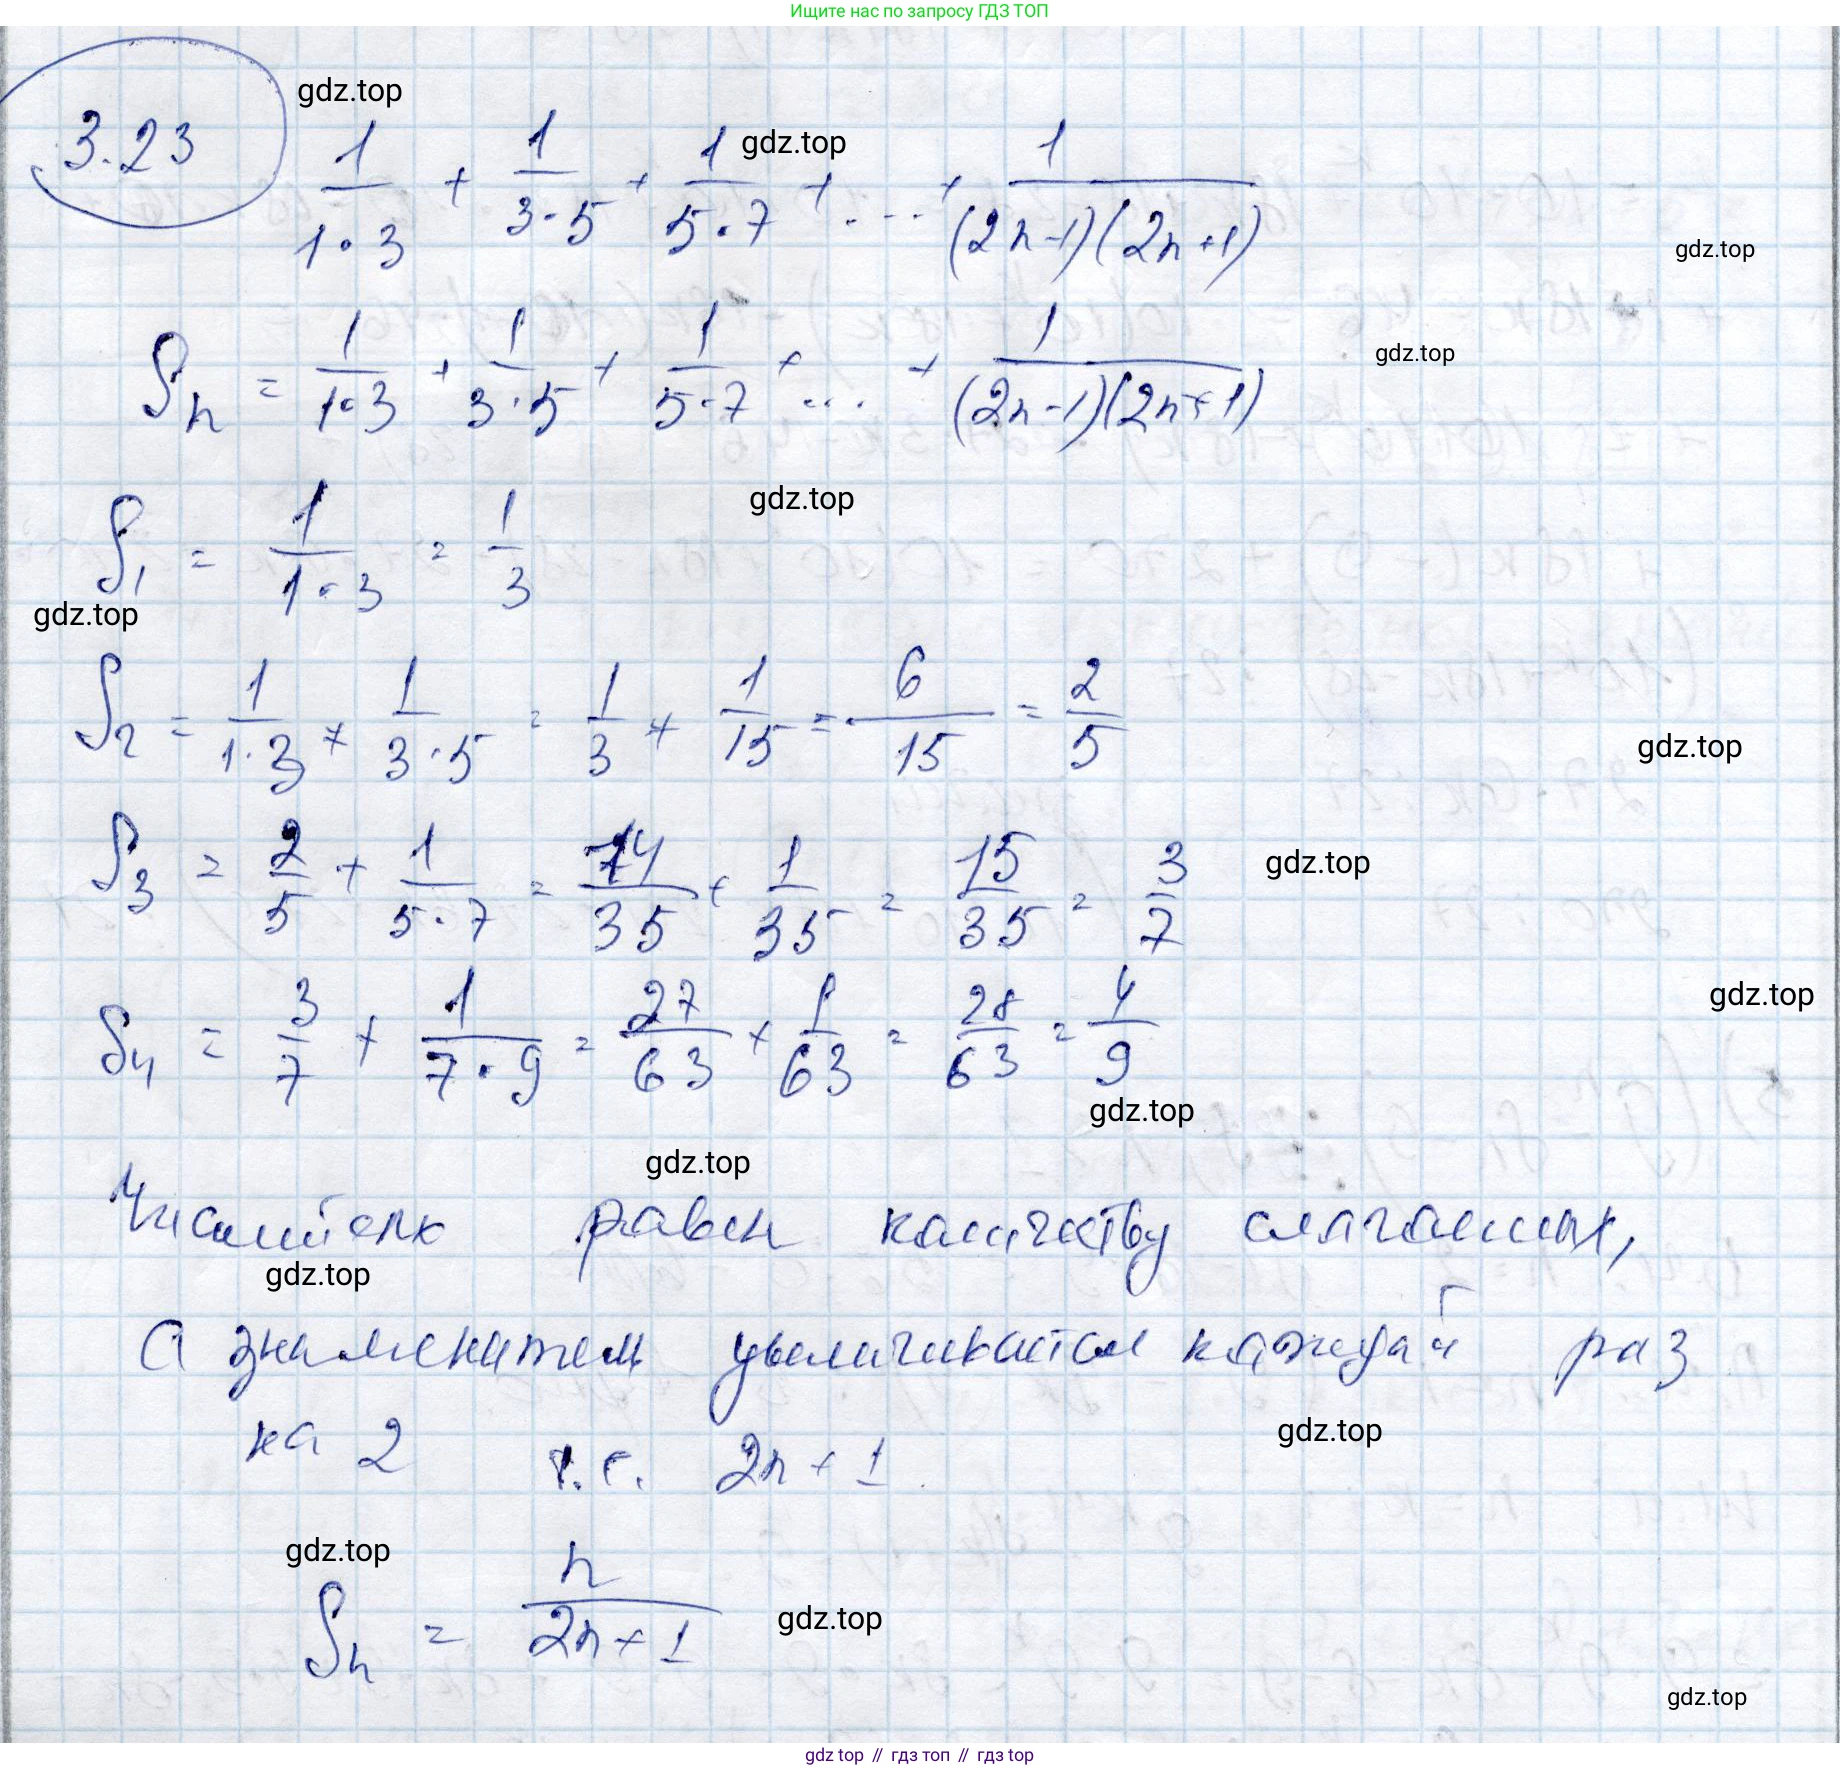 Ищите нас по запросу ГДЗ ТОП
gdz.top
3.23
1/(1·3) + 1/(3·5) + 1/(5·7) + ... + 1/((2n-1)(2n+1))
gdz.top
gdz.top
Sn = 1/(1·3) + 1/(3·5) + 1/(5·7) + ... + 1/((2n-1)(2n+1))
gdz.top
S1 = 1/(1·3) = 1/3
gdz.top
gdz.top
S2 = 1/(1·3) + 1/(3·5) = 1/3 + 1/15 = 6/15 = 2/5
gdz.top
S3 = 2/5 + 1/(5·7) = 14/35 + 1/35 = 15/35 = 3/7
gdz.top
S4 = 3/7 + 1/(7·9) = 27/63 + 1/63 = 28/63 = 4/9
gdz.top
gdz.top
gdz.top
Числитель равен количеству слагаемых,
gdz.top
а знаменатель увеличивается каждый раз
на 2 т.е. 2n + 1
gdz.top
gdz.top
Sn = n/(2n + 1)
gdz.top
gdz.top
gdz top // гдз топ // гдз top